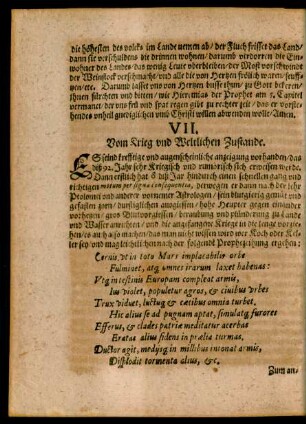 die höhesten des volcks im Lande nemen ab/ der Fluch frisset das Land/
dann sie verschuldens die drinnen wohnen/ darumb verdorren die Ein-
wohner des Landes/ das wenig Leute uberbleiben/ der Most verschwindt
der Weinstock verschmacht/ und alle die von Hertzen frölich waren/ seuff-
zen/ etc. Darumb lasset uns von Hertzen busse thun/ zu Gott bekeren/
ihnen fälschen und bitten/ wie Hieremias der Prophet am
vermanet/ der uns frü und spat regen gibt zu rechter zeit/ das er vorste-
hendes unheil gnediglichen umb Christi willen abwenden wolle/ Amen.
VII.
Vom Krieg und Weltlichen Zustande.
ES seind krefftige und augenscheinliche anzeigung vorhanden/ das
diß 92. Jahr sehr Kriegisch und rumorisch sich erweisen werde.
Dann erstlich hat diß Jar hindurch einen schrecklichen gang und
richtigen motum per signa consequentia, derwegen er dann nach der lehr
Ptolomæi und anderer vornemer Astrologen/ sein blutgierig gemüt und
gefasten zorn/ dürstiglichen ausgiessen/ hohe Heupter gegen einander
vorhetzen/ gros Blutvergiessen/ beraubung und plünderung zu Lande
und Wasser anrichten/ und die angefangne Kriege in die lenge vorzie-
hen/ es auch also machen/ das man nicht wissen wird wer Koch oder Kel-
ler sey/ und mag leichtlich nach der folgende Prophezeihung ergehen:
Cernis, ut in toto Mars implacabilis orbe
Fulminet, atq; omnes irarum laxet habenas:
Vtq; intestinis Europam compleat armis,
Ius violet, populetur agros, & ciuibus orbes
Trux viduet, luctuq; & cædibus omnia turbet,
Hic alius se ad pugnam aptat, simulatq; furores
Efferus, & clades patriæ meditatur acerbas
Eratæ alius fidens in prælia turmas,
Ductor agit, medijsq; in millibus intonat armis,
Displodit tormenta alius, &c.
Zum an-